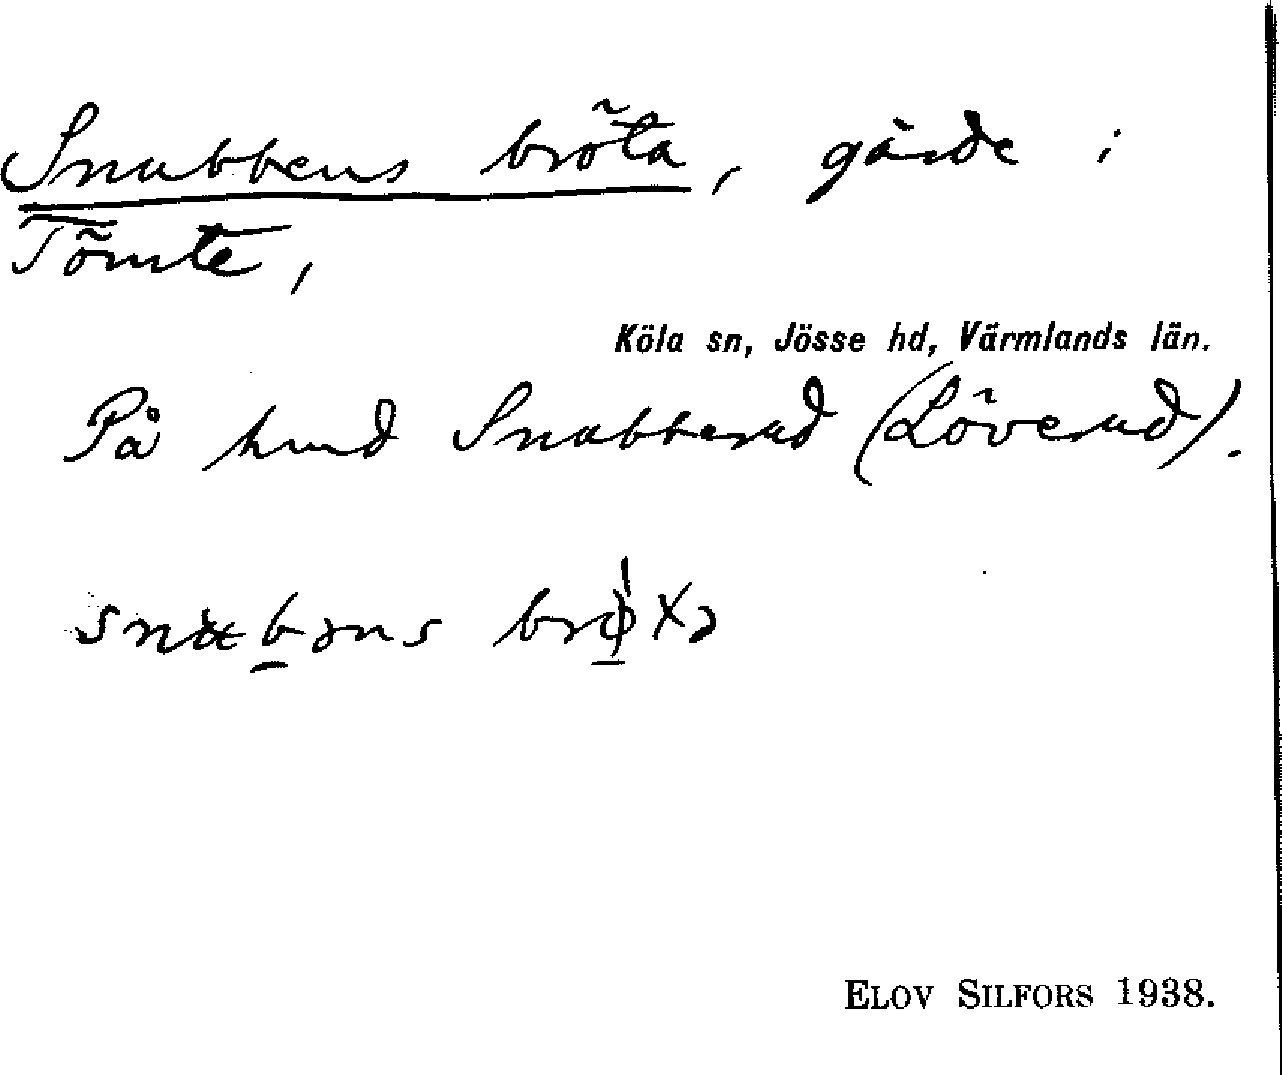 Snubbens bröta, gärde i
Tömte,
Köla sn, Jösse hd, Värmlands län.
På hmd Snubberud (Löverud).
ELOV SILFORS 1938.